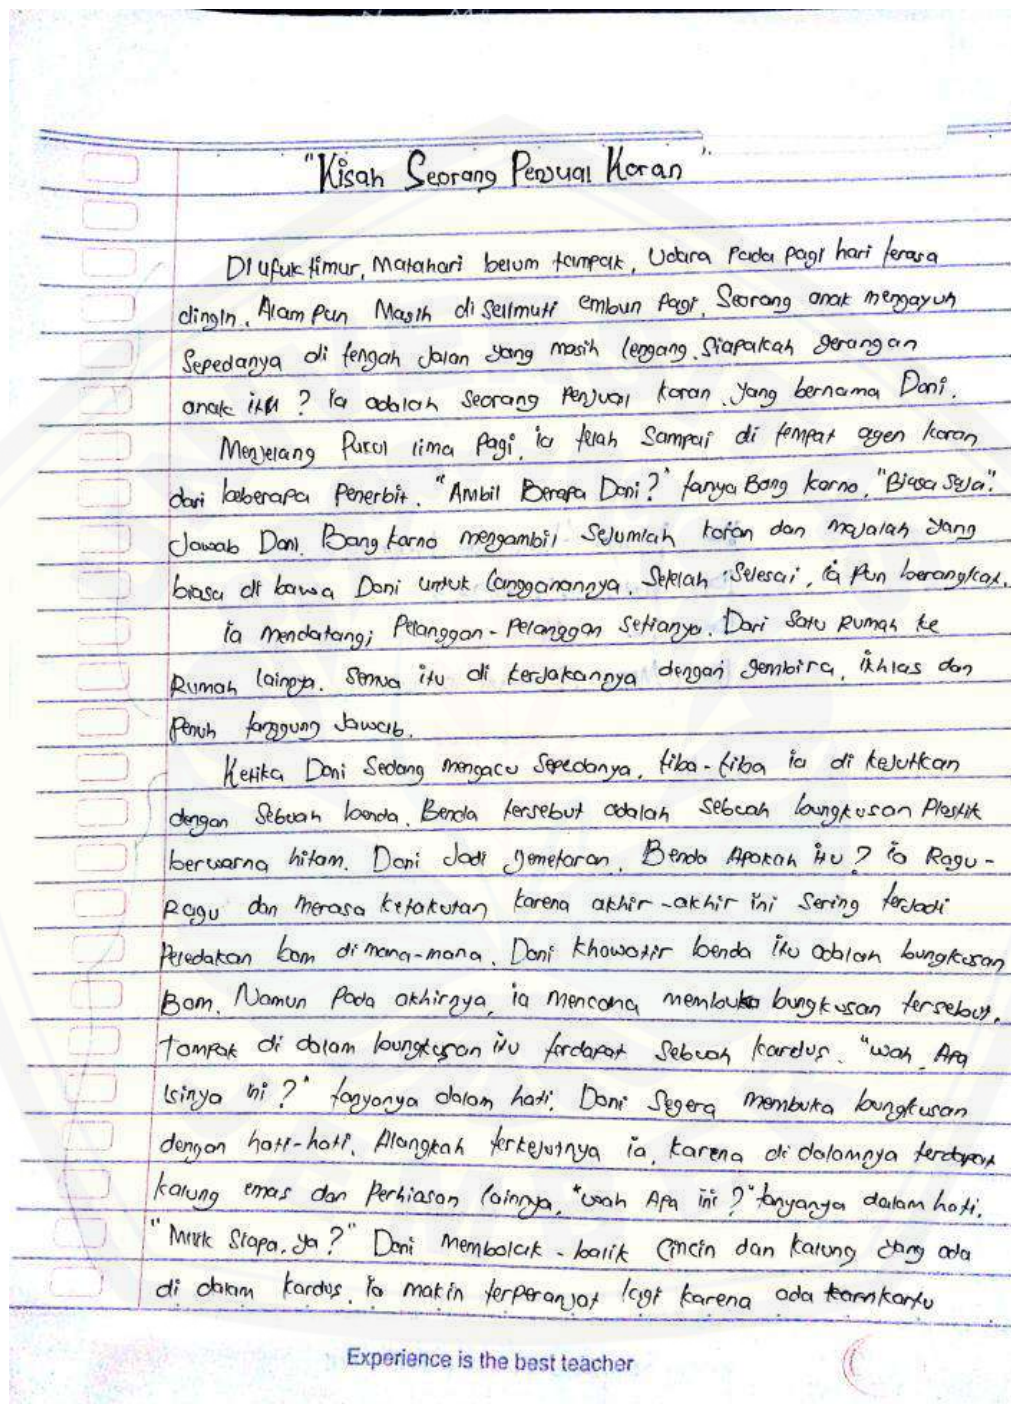 "Kisah Seorang Penjual Koran"
Di ufuk timur, Matahari belum tampak, Udara Pada pagi hari terasa
dingin. Alam Pun Masih di Selimuti embun Pagi. Seorang anak mengayuh
Sepedanya di tengah Jalan yang masih lengang. Siapakah gerangan
anak itu ? ia adalah Seorang Penjual koran yang bernama Doni.
Menjelang Pukul lima Pagi, ia telah Sampai di tempat agen koran
dari beberapa Penerbit. "Ambil Berapa Doni?" tanya Bang karno, "Biasa Saja".
Jawab Doni. Bang karno mengambil Sejumlah koran dan majalah yang
biasa di bawa Doni untuk langganannya. Setelah Selesai, ia Pun berangkat.
ia mendatangi Pelanggan-Pelanggan Setianya. Dari Satu Rumah ke
Rumah lainnya. Semua itu di kerjakannya dengan gembira, ikhlas dan
Penuh tanggung Jawab.
Ketika Doni Sedang mengacu Sepedanya, tiba-tiba ia di kejutkan
dengan Sebuah benda. Benda tersebut adalah sebuah bungkusan Plastik
berwarna hitam. Doni Jadi gemetaran. Benda Apakah itu ? ia Ragu-
Ragu dan merasa ketakutan karena akhir-akhir ini Sering terjadi
Peledakan bom di mana-mana. Doni khowatir benda itu adalah bungkusan
Bom. Namun Pada akhirnya, ia mencoma membuka bungkusan tersebut.
Tampak di dalam bungkusan itu terdapat Sebuah kardus. "wah Apa
isinya ini ?" tanyanya dalam hati. Doni Segera membuka bungkusan
dengan hati-hati. Alangkah terkejutnya ia, karena di dalamnya terdapat
kalung emas dan Perhiasan lainnya, "wah Apa ini ?" tanyanya dalam hati.
"Milik Siapa, ya ?" Doni membolak-balik Cincin dan kalung yang ada
di dalam kardus. ia makin terperanjat lagi karena ada kartu
Experience is the best teacher